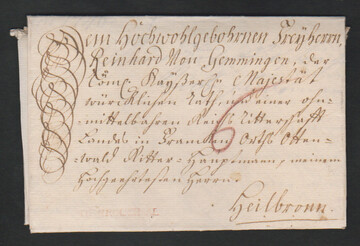 Dem Hochwohlgebohrnen Freyherrn,
Reinhard Von Gemmingen, der
Röm: Kayserl: Majestät
würcklichen Rath, und einer ohn-
mittelbahren Reichs Ritterschafft
Landes in Francken Orths Otten-
wald Ritter-Hauptmann, meinem
Hochgeehrtesten Herrn.
6
Heilbronn.